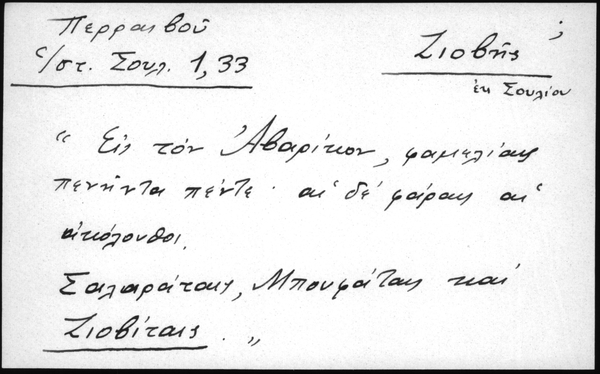 Περραιβοῦ
Ἱστ. Σουλ. 1,33
Ζιοβῆς ;
ἐκ Σουλίου
" Εἰς τόν Ἀβαρίκον, φαμελίαις
πενῆντα πέντε · αἱ δέ φάραις αἱ
ἀκόλουθοι.
Σαλαράταις, Μπουφάταις καί
Ζιοβίταις . "